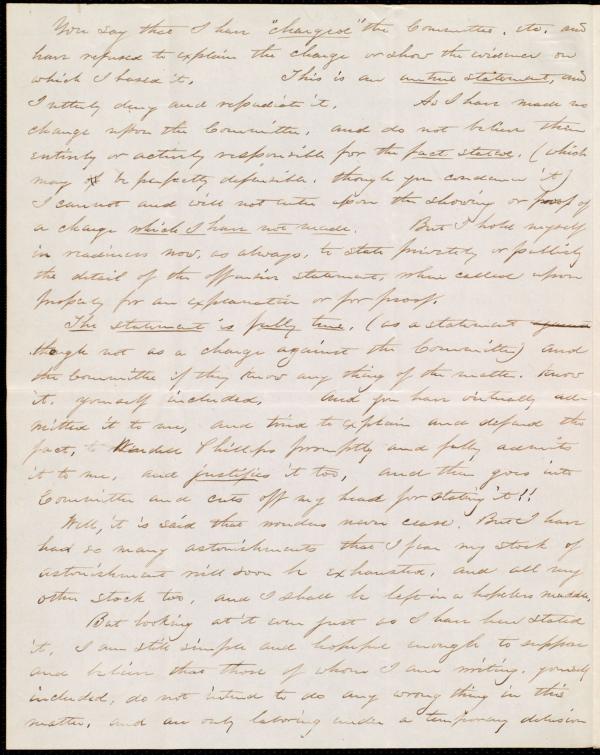 You say that I have "charged" the Committee, etc, and
have refused to explain the charge or show the evidence on
which I based it. This is an untrue statement, and
I utterly deny and repudiate it. As I have made no
charge upon the Committee, and do not believe them
entirely or actively responsible for the fact stated, (which
may be perfectly defensible, though you condemn it)
I cannot and will not enter upon the showing or proof of
a charge which I have not made. But I hold myself
in readiness now, as always, to state privately or publicly
the detail of the offensive statement, when called upon
properly for an explanation or for proof.
The statement is fully true, (as a statement
though not as a charge against the Committee) and
the Committee if they know any thing of the matter, know
it, yourself included, and you have virtually ad-
mitted it to me, and tried to explain and defend the
fact, Wendell Phillips promptly and fully admits
it to me, and justifies it too, and then goes into
Committee and cuts off my head for stating it!!
Well, it is said that wonders never cease. But I have
had so many astonishments that I fear my stock of
astonishment will soon be exhausted, and all my
other stock too, and I shall be left in a hopeless muddle.
But looking at it even just as I have here stated
it, I am still simple and hopeful enough to suppose
and believe that those of whom I am writing, yourself
included, do not intend to do any wrong thing in this
matter, and are only laboring under a temporary delusion